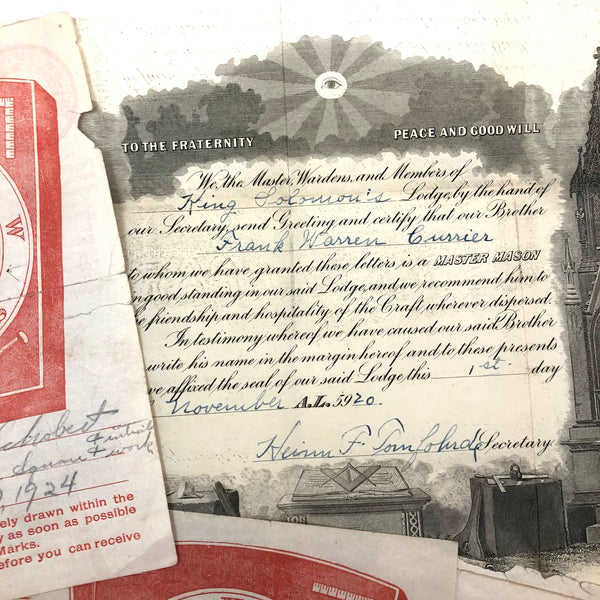 TO THE FRATERNITY
PEACE AND GOOD WILL
We, the Master, Wardens, and Members of
King Solomon's Lodge, by the hand of
our Secretary, send Greeting and certify that our Brother
Frank Warren Currier
to whom we have granted these letters is a MASTER MASON
in good standing in our said Lodge, and we recommend him to
e friendship and hospitality of the Craft wherever dispersed.
In testimony whereof we have caused our said Brother
write his name in the margin hereof and to these presents
ve affixed the seal of our said Lodge, this 1st. day
November A.L. 5920.
Secretary.
W
square & work
1924
ely drawn within the
y as soon as possible
Marks.
efore you can receive